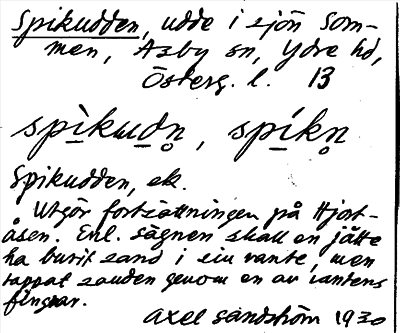 Spikudden, udde i sjön Som-
men, Asby sn, Ydre hd,
Österg. l. 13
spìkudn̥, spíkn̥
Spikudden, ek.
Utgör fortsättningen på Hjort-
åsen. Enl. sägnen skall en jätte
ha burit sand i sin vante, men
tappat sanden genom en av vantens
fingrar.
Axel Sandström 1930